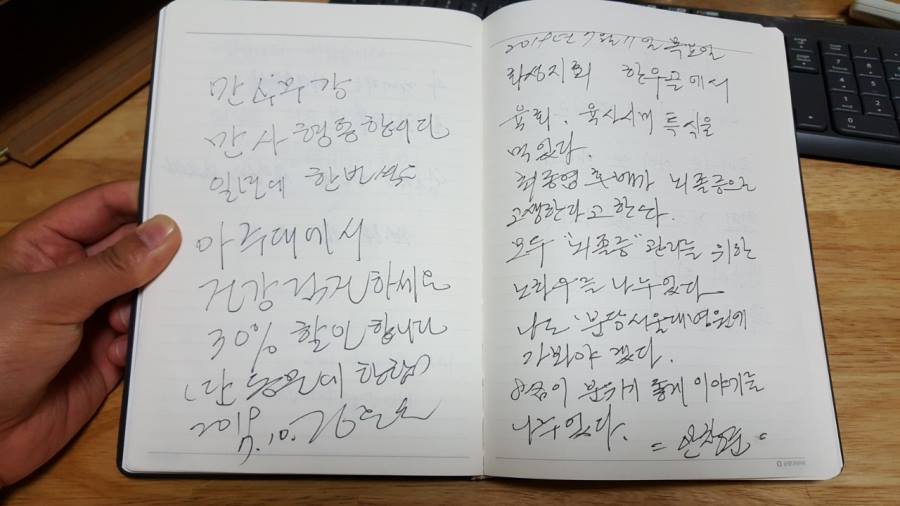 만수무강
만사 형통합이다
일년에 한번씩
아주대에서
건강검진하세요
30% 할인 합니다
단 동문에 한함
2019. 7. 10.
2019년 7월 11일 목요일
화성지회 한우골에서
육회. 육사시미 특식을
먹었다.
후배가 뇌졸증으로
고생한다고 한다.
모두 "뇌졸증" 관리를 위한
노하우를 나누었다
나도 분당서울대병원에
가봐야 겠다.
분위기 좋게 이야기를
나누었다.